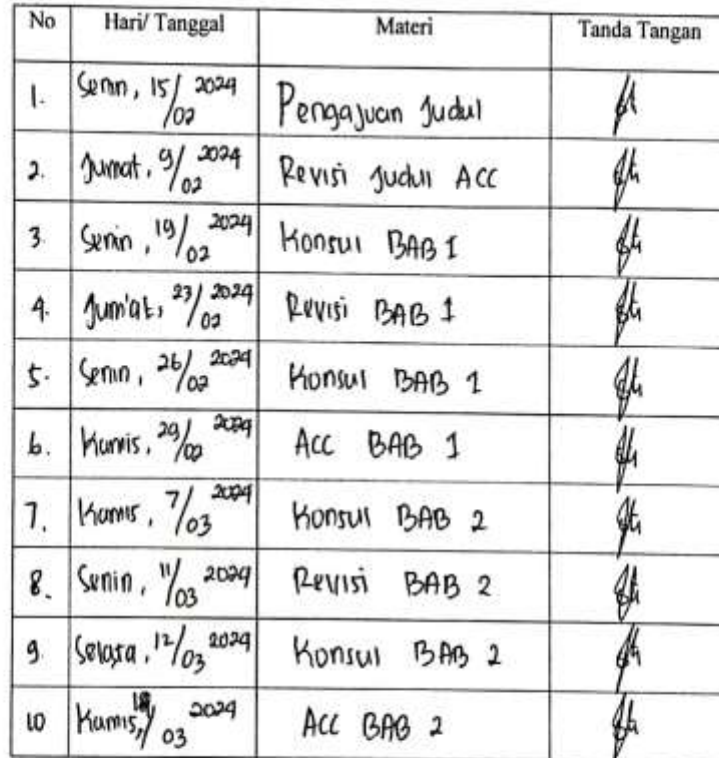 No Hari/ Tanggal Materi Tanda Tangan
1. Senin, 15/02 2024 Pengajuan Judul
2. Jumat, 9/02 2024 Revisi Judul ACC
3. Senin, 19/02 2024 Konsul BAB 1
4. Jum'at, 23/02 2024 Revisi BAB 1
5. Senin, 26/02 2024 Konsul BAB 1
6. Kamis, 29/02 2024 Acc BAB 1
7. Kamis, 7/03 2024 Konsul BAB 2
8. Senin, 11/03 2024 Revisi BAB 2
9. Selasa, 12/03 2024 Konsul BAB 2
10 Kamis, /03 2024 Acc BAB 2